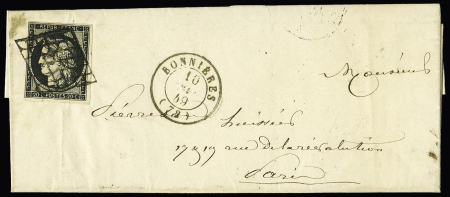 REPUB. FRANC.
20 C. POSTES 20 C.
BONNIÈRES
10
49
(72)
Monsieur
Pierre
huissier
17 & 19 rue de la révolution
Paris